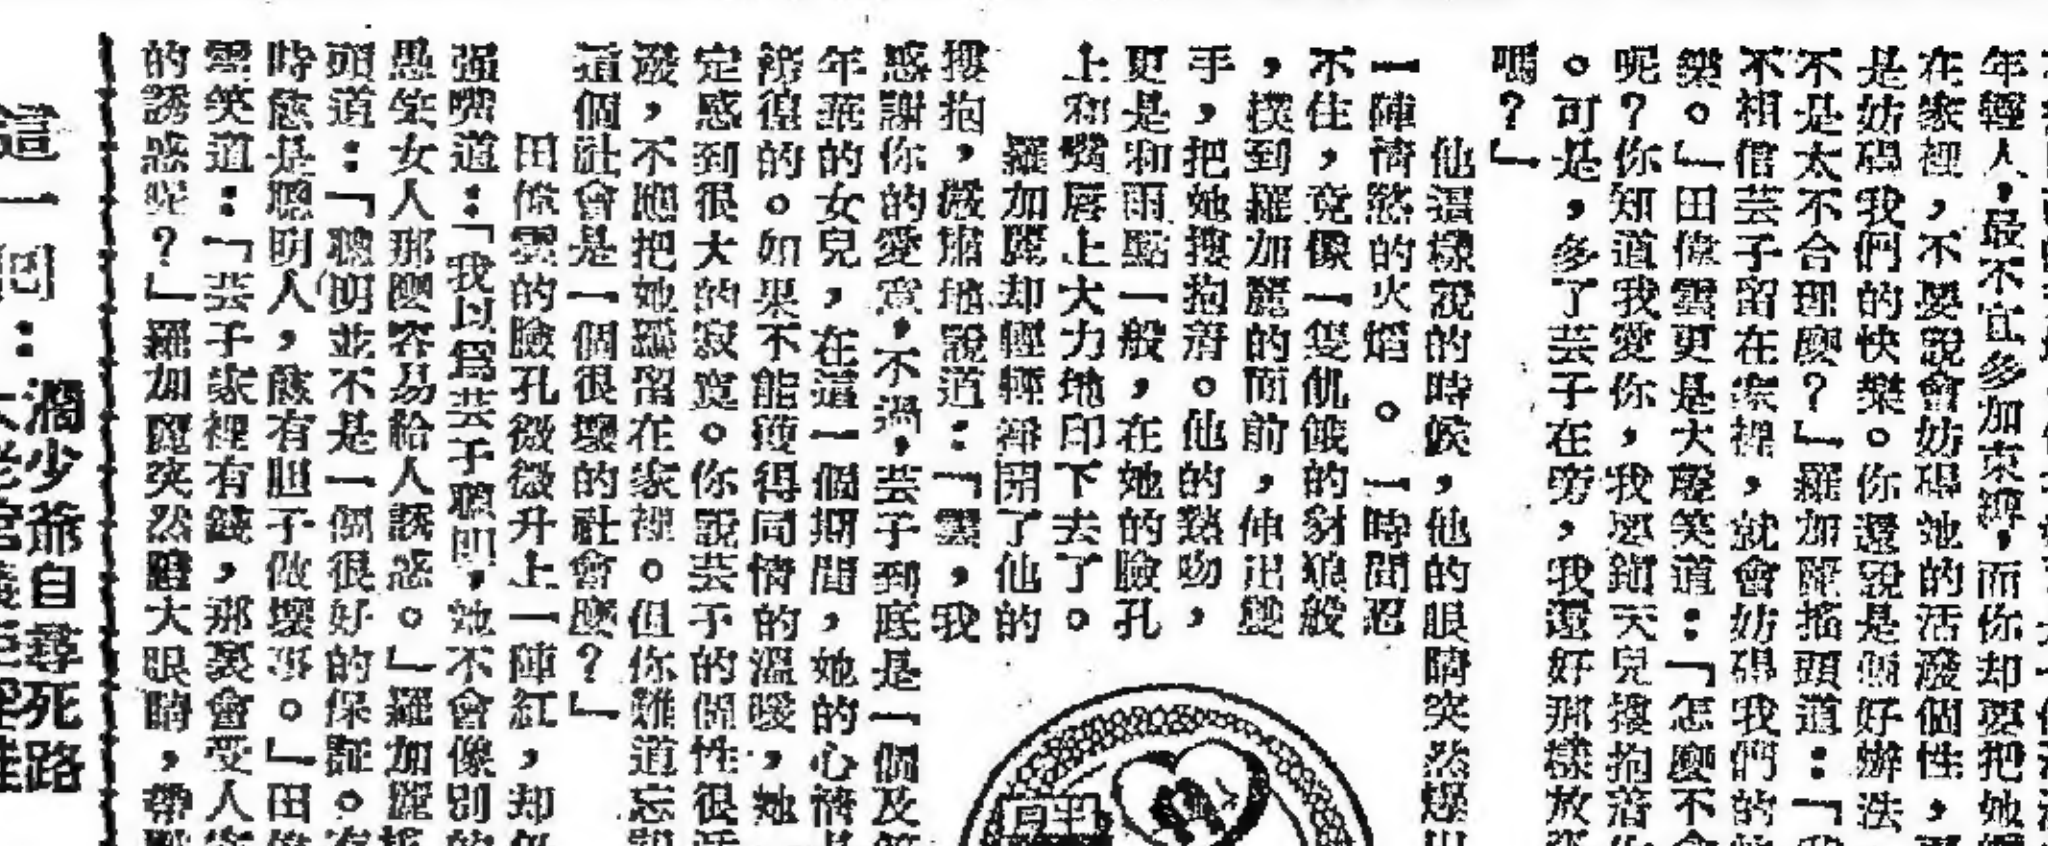 年輕人，最不宜多加束縛，而你却要把她
在家裡，不要說會妨碍她的活潑個性，
是妨碍我們的快樂。你還說是個好辦法
不是太不合理麼？」羅加麗搖頭道：「我
不相信芸子留在家裡，就會妨碍我們的
樂。」田偉雲更是大聲笑道：「怎麼不會
呢？你知道我愛你，我恐鎮天兒摟抱着你
。可是，多了芸子在旁，我還好那樣放
嗎？」
他這樣說的時候，他的眼睛突然爆出
一陣情慾的火熖。一時間忍
不住，竟像一隻飢餓的豺狼般
，撲到羅加麗的面前，伸出雙
手，把她摟抱着。他的熱吻，
更是和雨點一般，在她的臉孔
上和嘴唇上大力地印下去了。
羅加麗却輕輕掙開了他的
摟抱，嚴肅地說道：「雲，我
感謝你的愛意，不過，芸子到底是一個及笄
年華的女兒，在這一個期間，她的心情
徬徨的。如果不能獲得同情的溫暖，她
定感到很大的寂寞。你說芸子的個性很活
潑，不應把她孤留在家裡。但你難道忘記
這個社會是一個很壞的社會麼？」
田偉雲的臉孔微微升上一陣紅，却
强嘴道：「我以爲芸子聰明，她不會像別的
愚笨女人那麼容易給人誘惑。」羅加麗搖
頭道：「聰明並不是一個很好的保証。有
時愈是聰明人，愈有胆子做壞事。」田偉
雲笑道：「芸子家裡有錢，那裏會受人家
的誘惑呢？」羅加麗突然睜大眼睛，帶
這一個：
濶少爺自尋死路